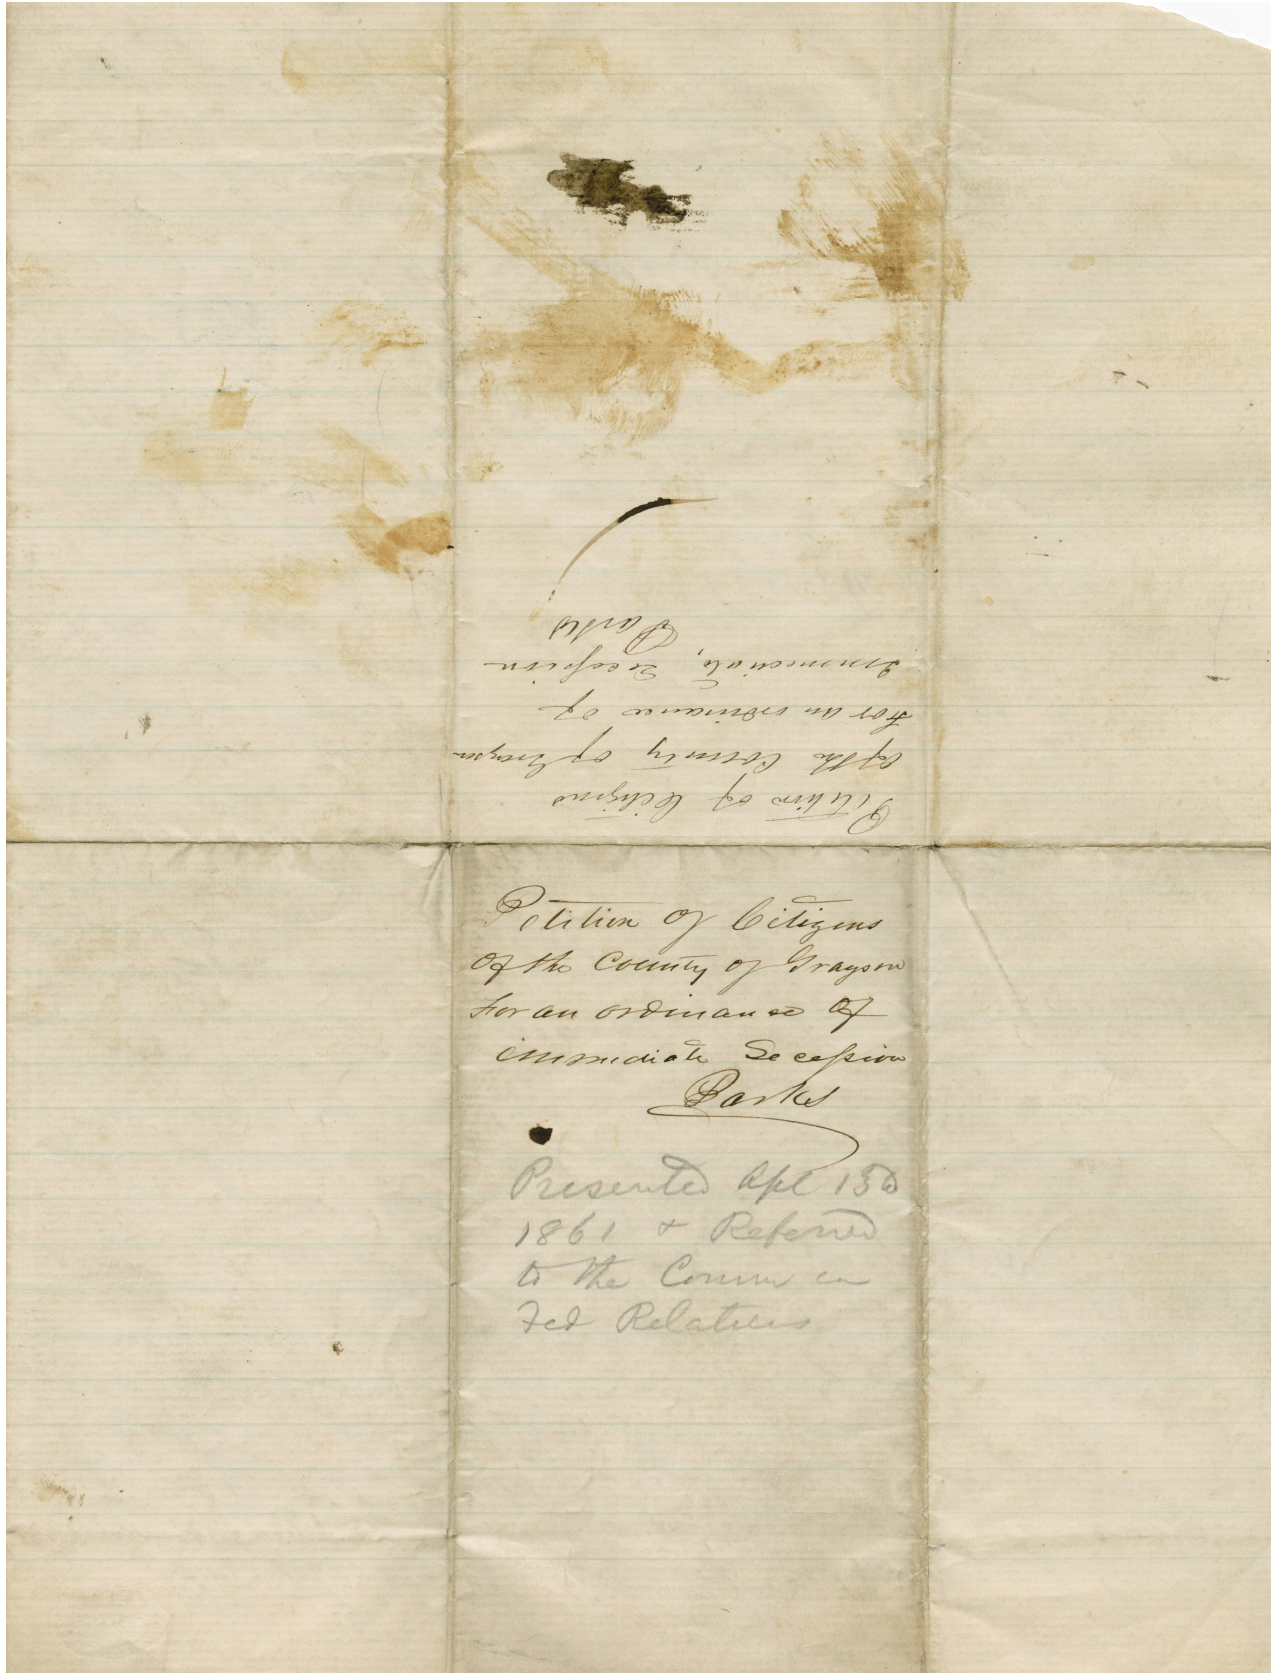 Petition of Citizens
Of the County of Grayson
For an ordinance of
Immediate, Secession
Parks
Petition of Citizens
Of the County of Grayson
For an ordinance of
immediate Secession
Parks
Presented Apl 15
1861 & Referred
to the Comm on
Fed Relations